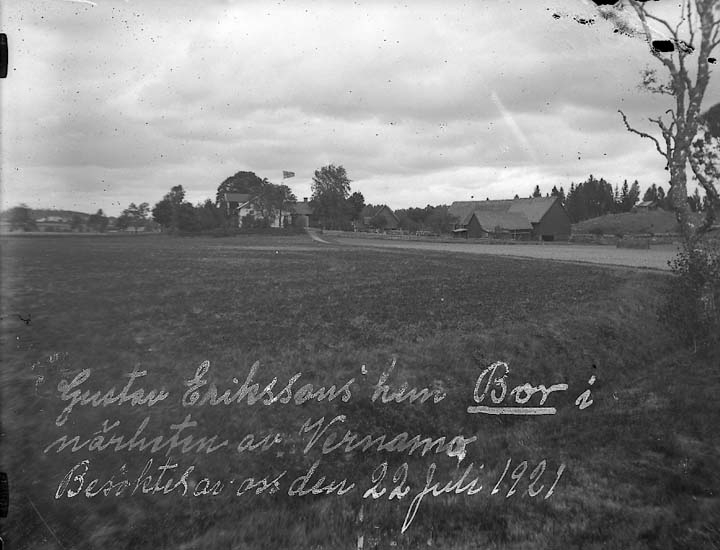 Gustav Erikssons' hem Bor i
närheten av Vernamo
Besöktes av oss den 22 Juli 1921